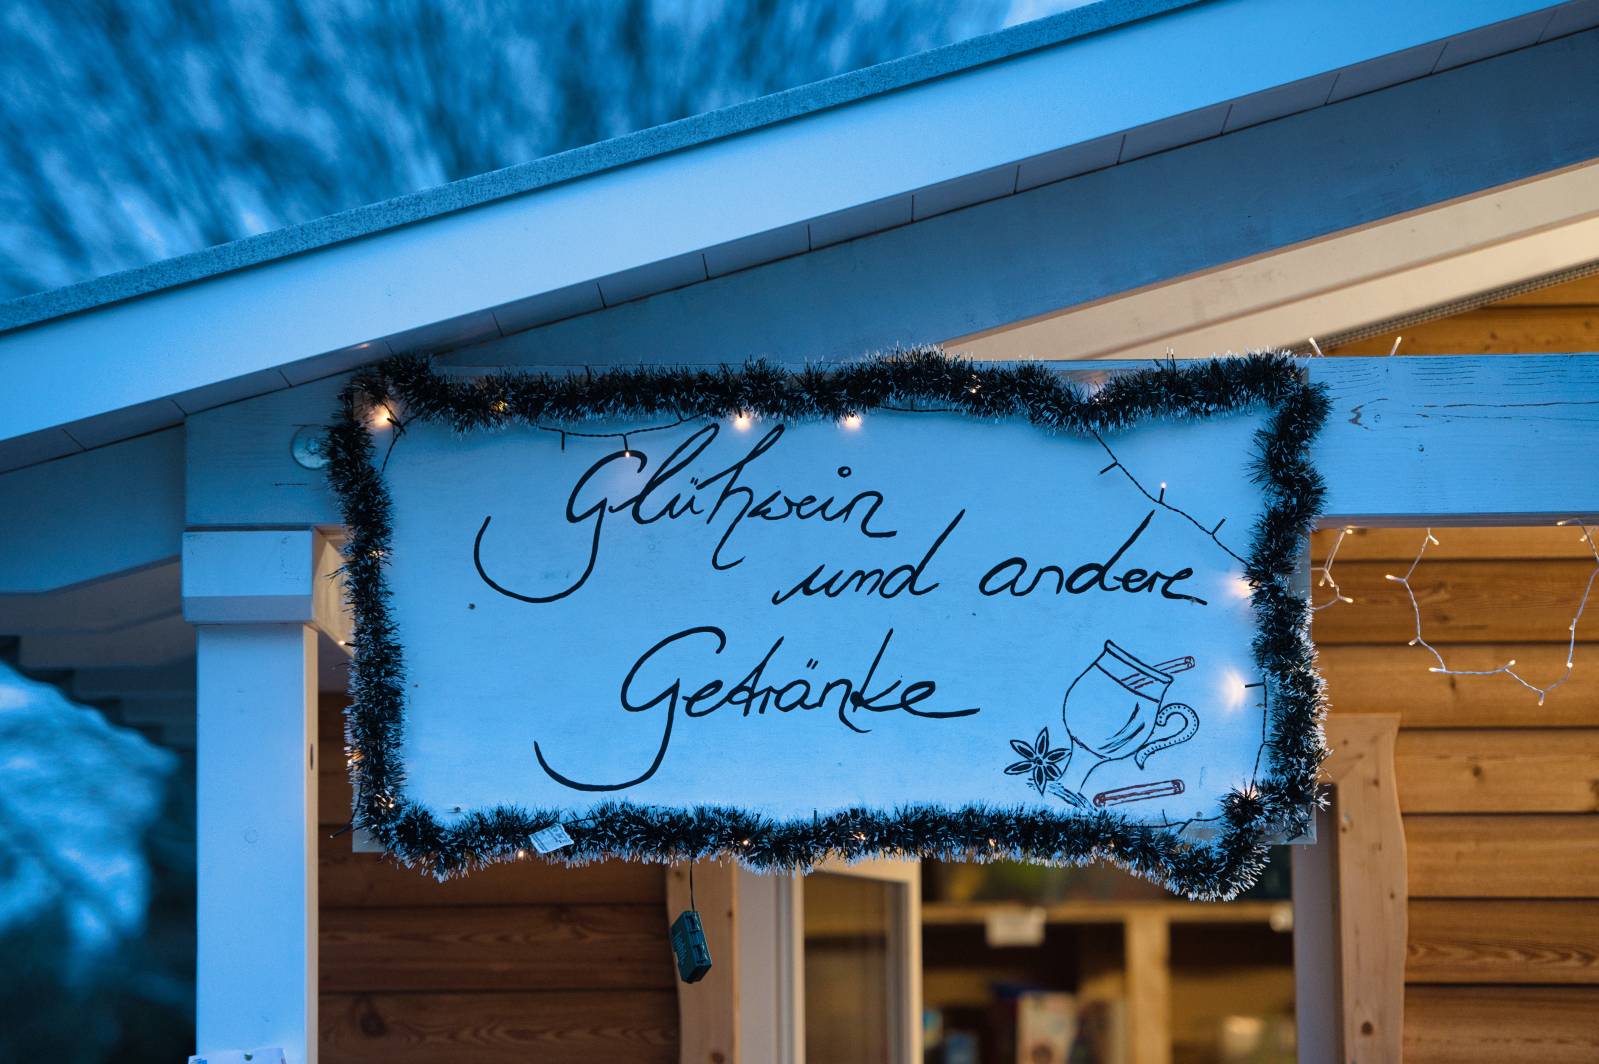 Glühwein
und andere
Getränke